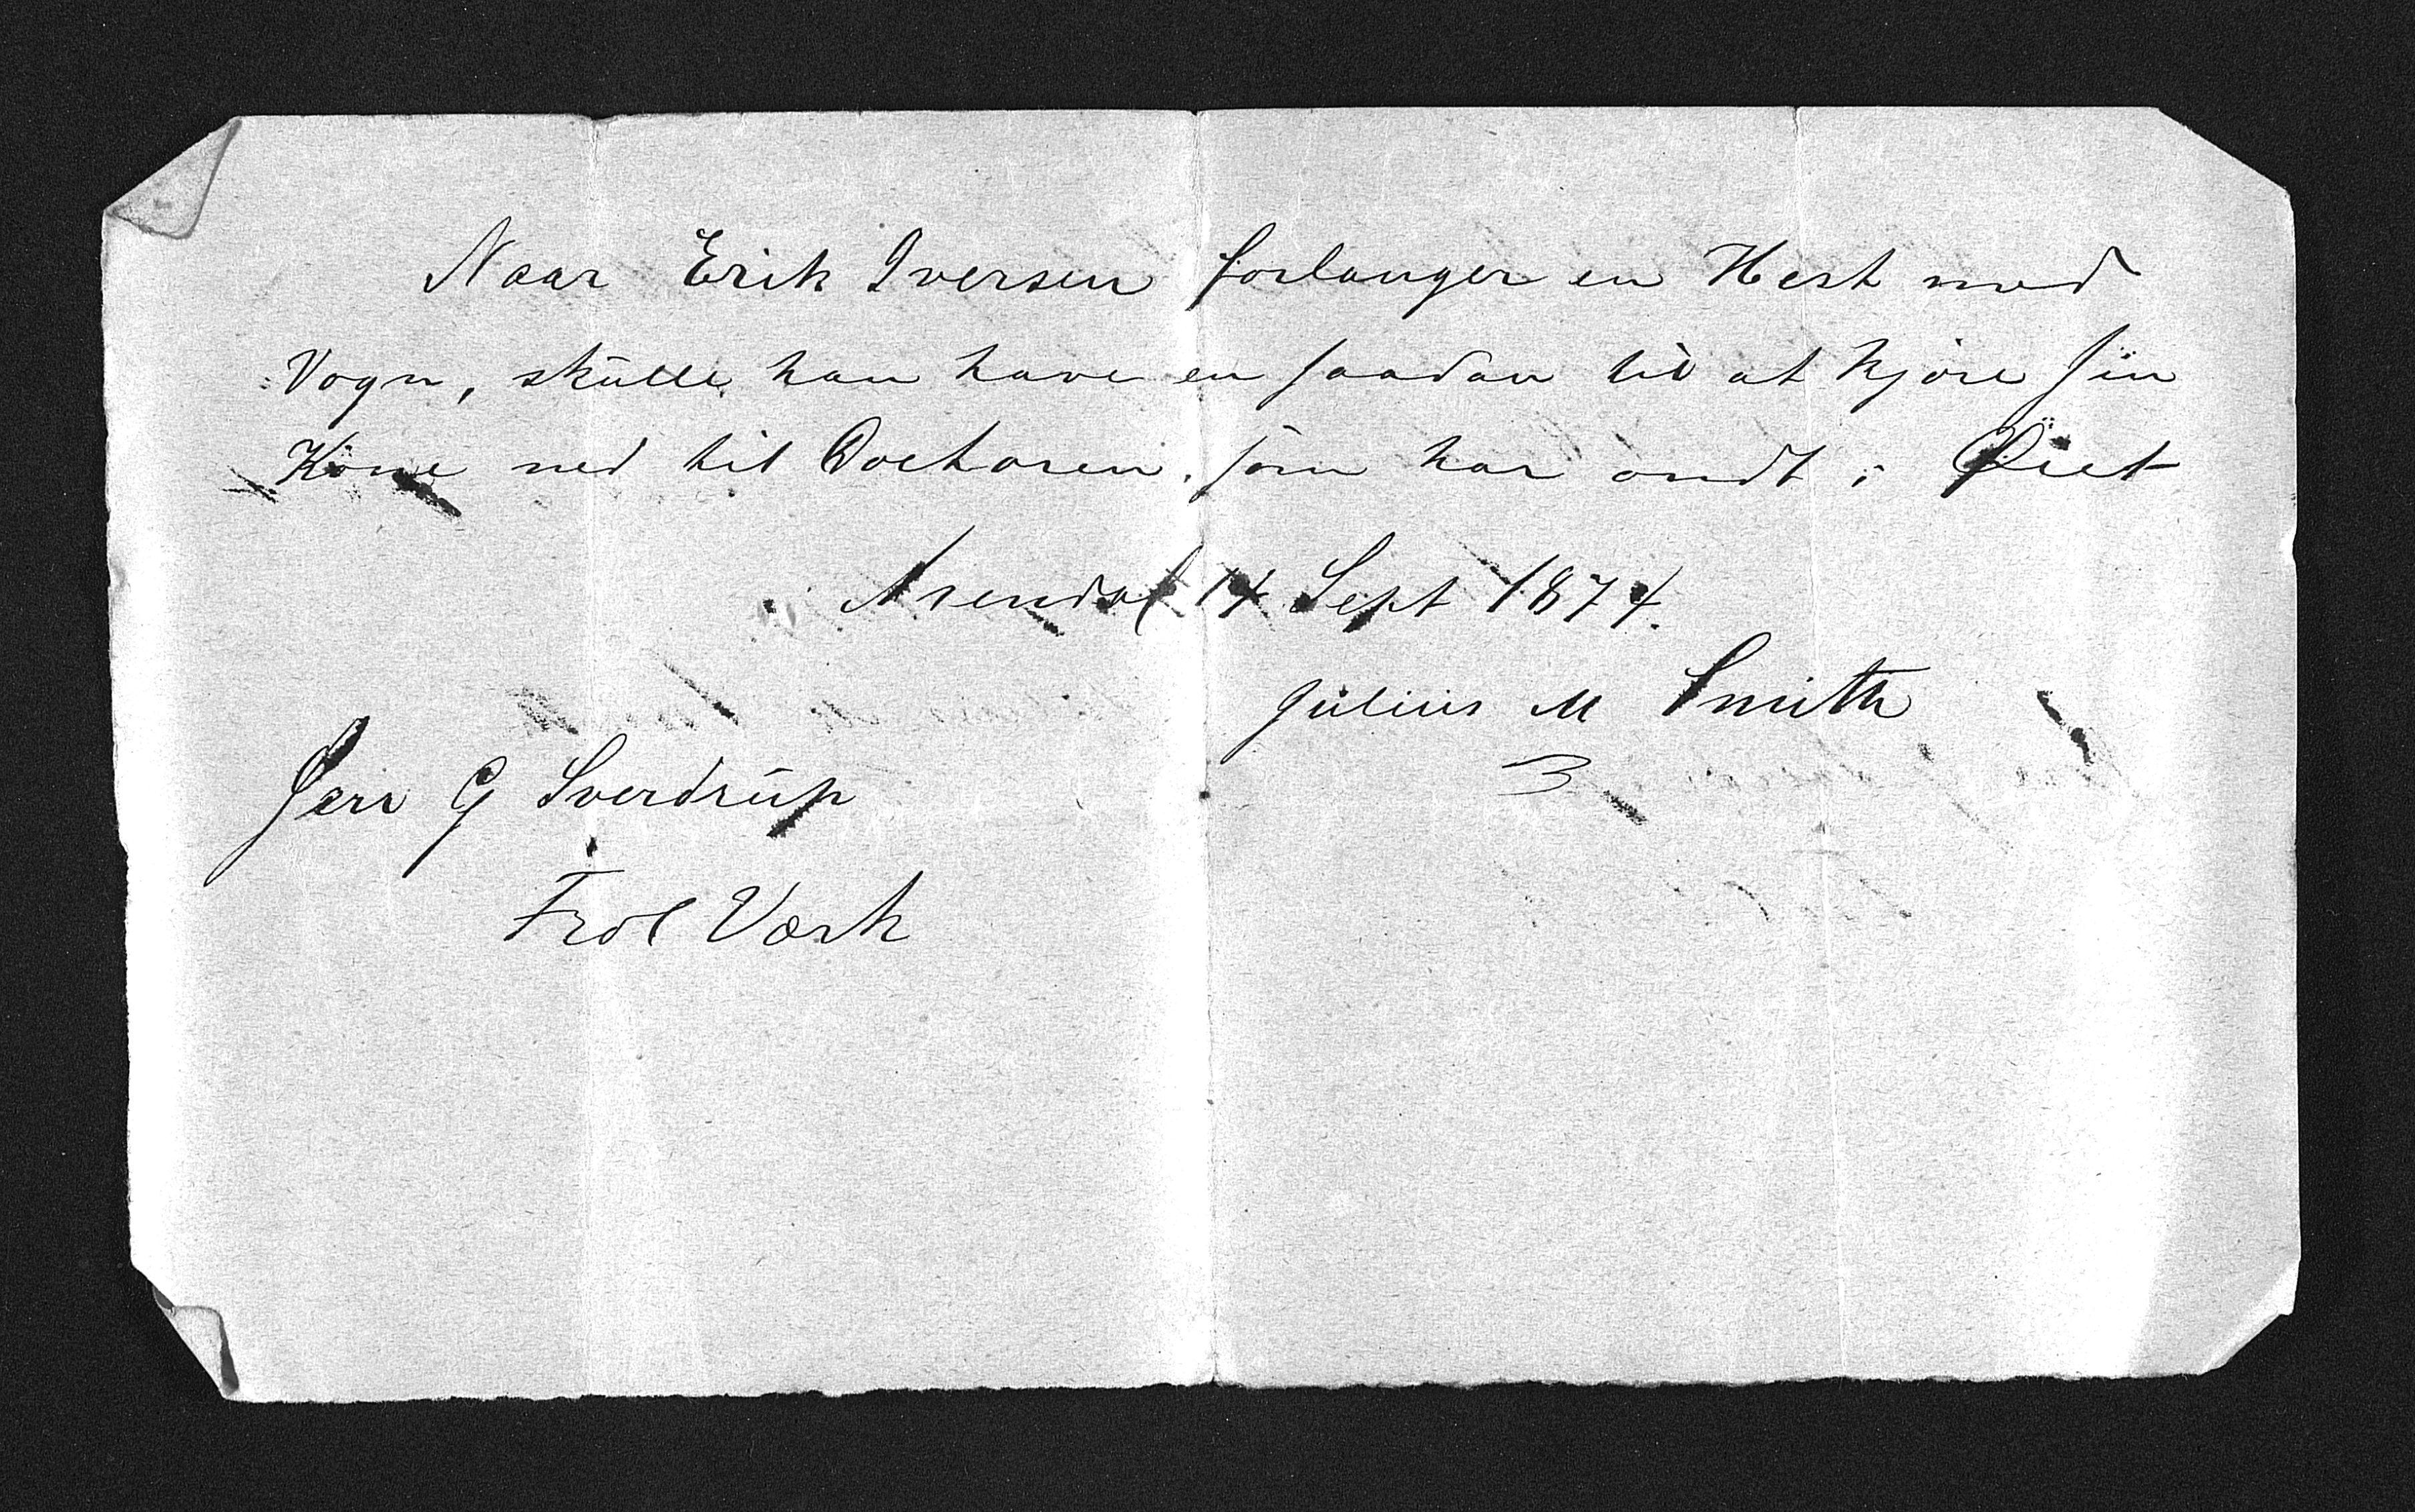 Naar Erik Iversen forlanger en Hest med
Vogn, skulle han have en saadan til at kjøre sin
Kone ned til Doctoren, som har ondt i Øiet
Arendal 14 Sept 1874.
Julius M Smith
Herr G Sverdrup
Frol Værk